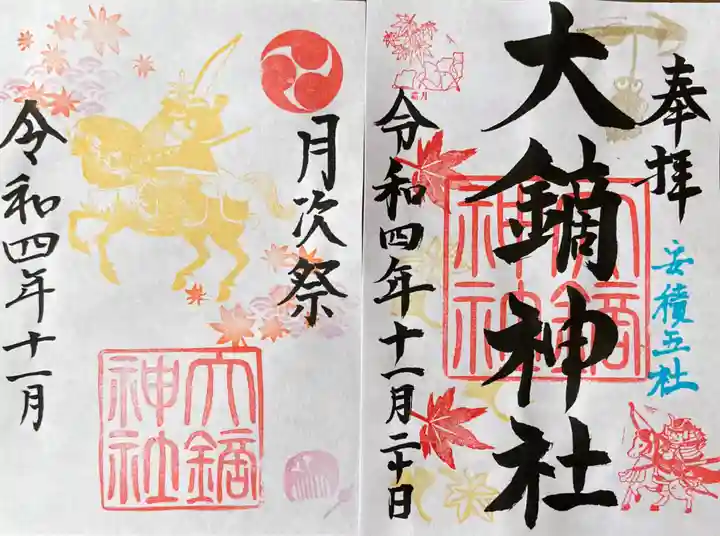 奉拝
安積五社
大鏑神社
大鏑神社
令和四年十一月二十日
霜月
月次祭
大鏑神社
令和四年十一月